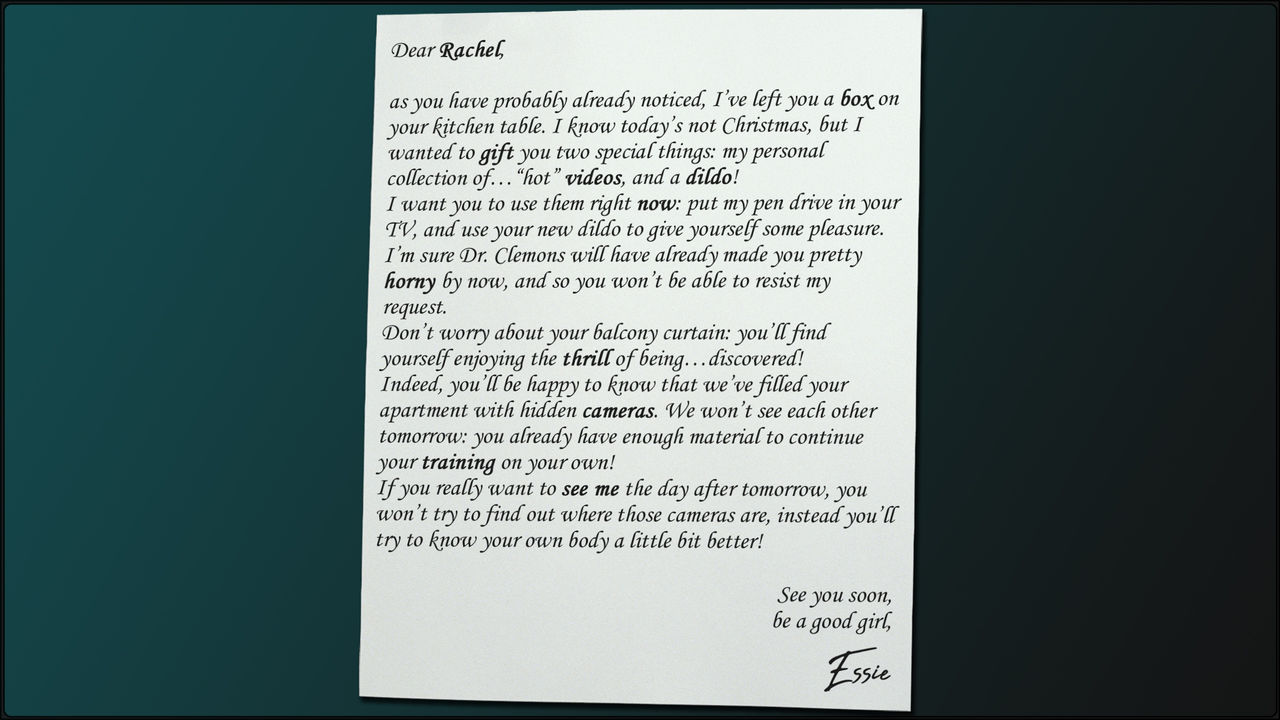 Dear Rachel,
as you have probably already noticed, I've left you a box on
your kitchen table. I know today's not Christmas, but I
wanted to gift you two special things: my personal
collection of…“hot” videos, and a dildo!
I want you to use them right now: put my pen drive in your
TV, and use your new dildo to give yourself some pleasure.
I'm sure Dr. Clemons will have already made you pretty
horny by now, and so you won't be able to resist my
request.
Don't worry about your balcony curtain: you'll find
yourself enjoying the thrill of being…discovered!
Indeed, you'll be happy to know that we've filled your
apartment with hidden cameras. We won't see each other
tomorrow: you already have enough material to continue
your training on your own!
If you really want to see me the day after tomorrow, you
won't try to find out where those cameras are, instead you'll
try to know your own body a little bit better!
See you soon,
be a good girl,
Essie